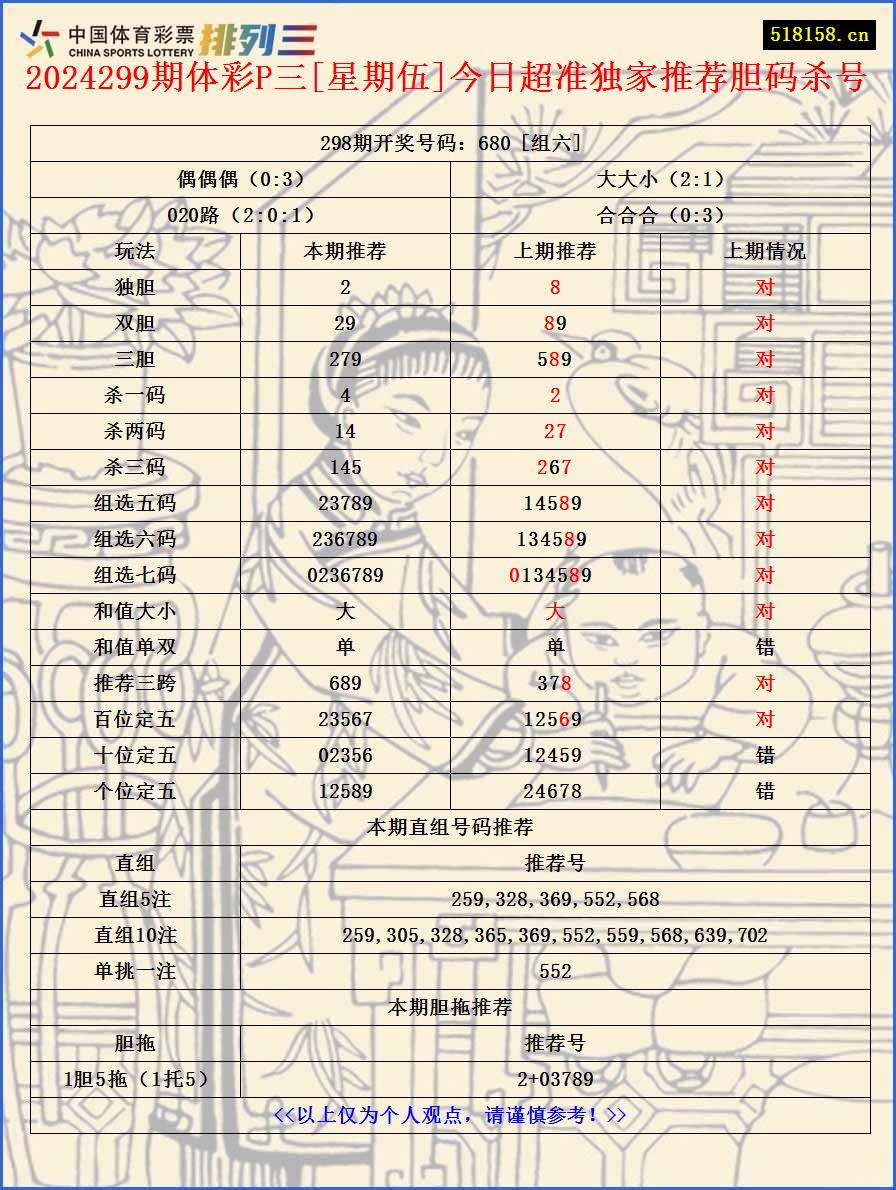 中国体育彩票 排列三
CHINA SPORTS LOTTERY
518158.cn
2024299期体彩P三[星期伍]今日超准独家推荐胆码杀号
298期开奖号码：680 [组六]
偶偶偶（0:3） 大大小（2:1）
020路（2:0:1） 合合合（0:3）
玩法 本期推荐 上期推荐 上期情况
独胆 2 8 对
双胆 29 89 对
三胆 279 589 对
杀一码 4 2 对
杀两码 14 27 对
杀三码 145 267 对
组选五码 23789 14589 对
组选六码 236789 134589 对
组选七码 0236789 0134589 对
和值大小 大 大 对
和值单双 单 单 错
推荐三跨 689 378 对
百位定五 23567 12569 对
十位定五 02356 12459 错
个位定五 12589 24678 错
本期直组号码推荐
直组 推荐号
直组5注 259,328,369,552,568
直组10注 259,305,328,365,369,552,559,568,639,702
单挑一注 552
本期胆拖推荐
胆拖 推荐号
1胆5拖（1托5） 2+03789
<<以上仅为个人观点，请谨慎参考！>>